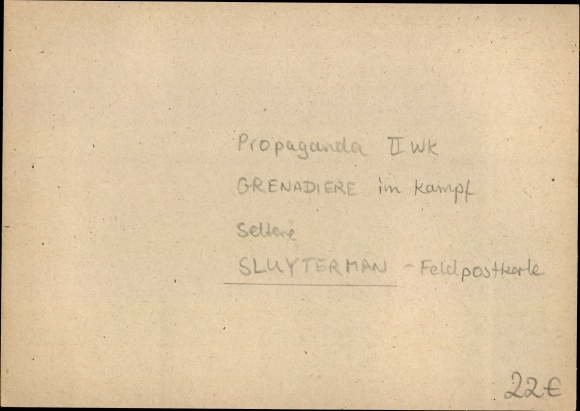 Propaganda II WK
GRENADIERE im Kampf
Seltene
SLUYTERMAN - Feldpostkarte
22€